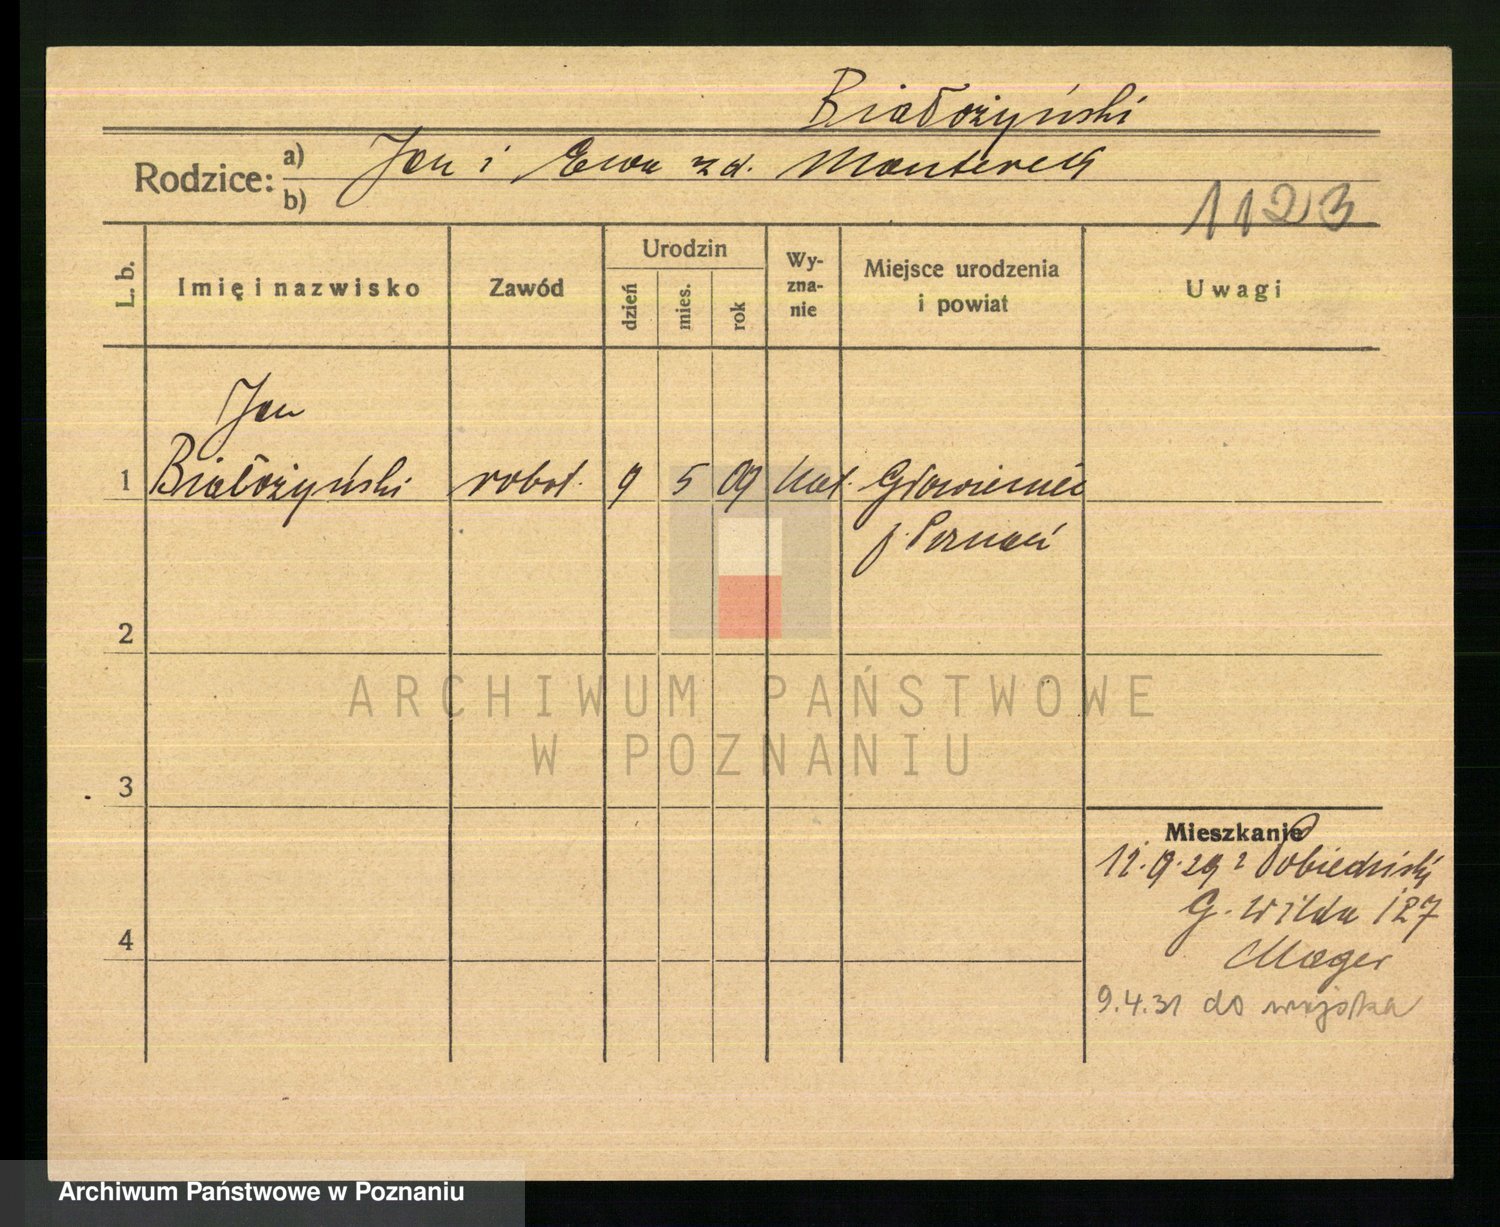 Białożyński
Rodzice:
a) Jan i Ewa zd.
b)
1123
L. b.
Imię i nazwisko
Zawód
Urodzin
dzień
mies.
rok
Wy-
zna-
nie
Miejsce urodzenia
i powiat
Uwagi
Jan
1 Białożyński robot. 9 5 09 kat.
p. Poznań
2
3
4
ARCHIWUM PAŃSTWOWE
W POZNANIU
Mieszkanie
11.9.29 z Pobiedziski
G. Wilda 127
Mager
9.4.31 do wojska
Archiwum Państwowe w Poznaniu